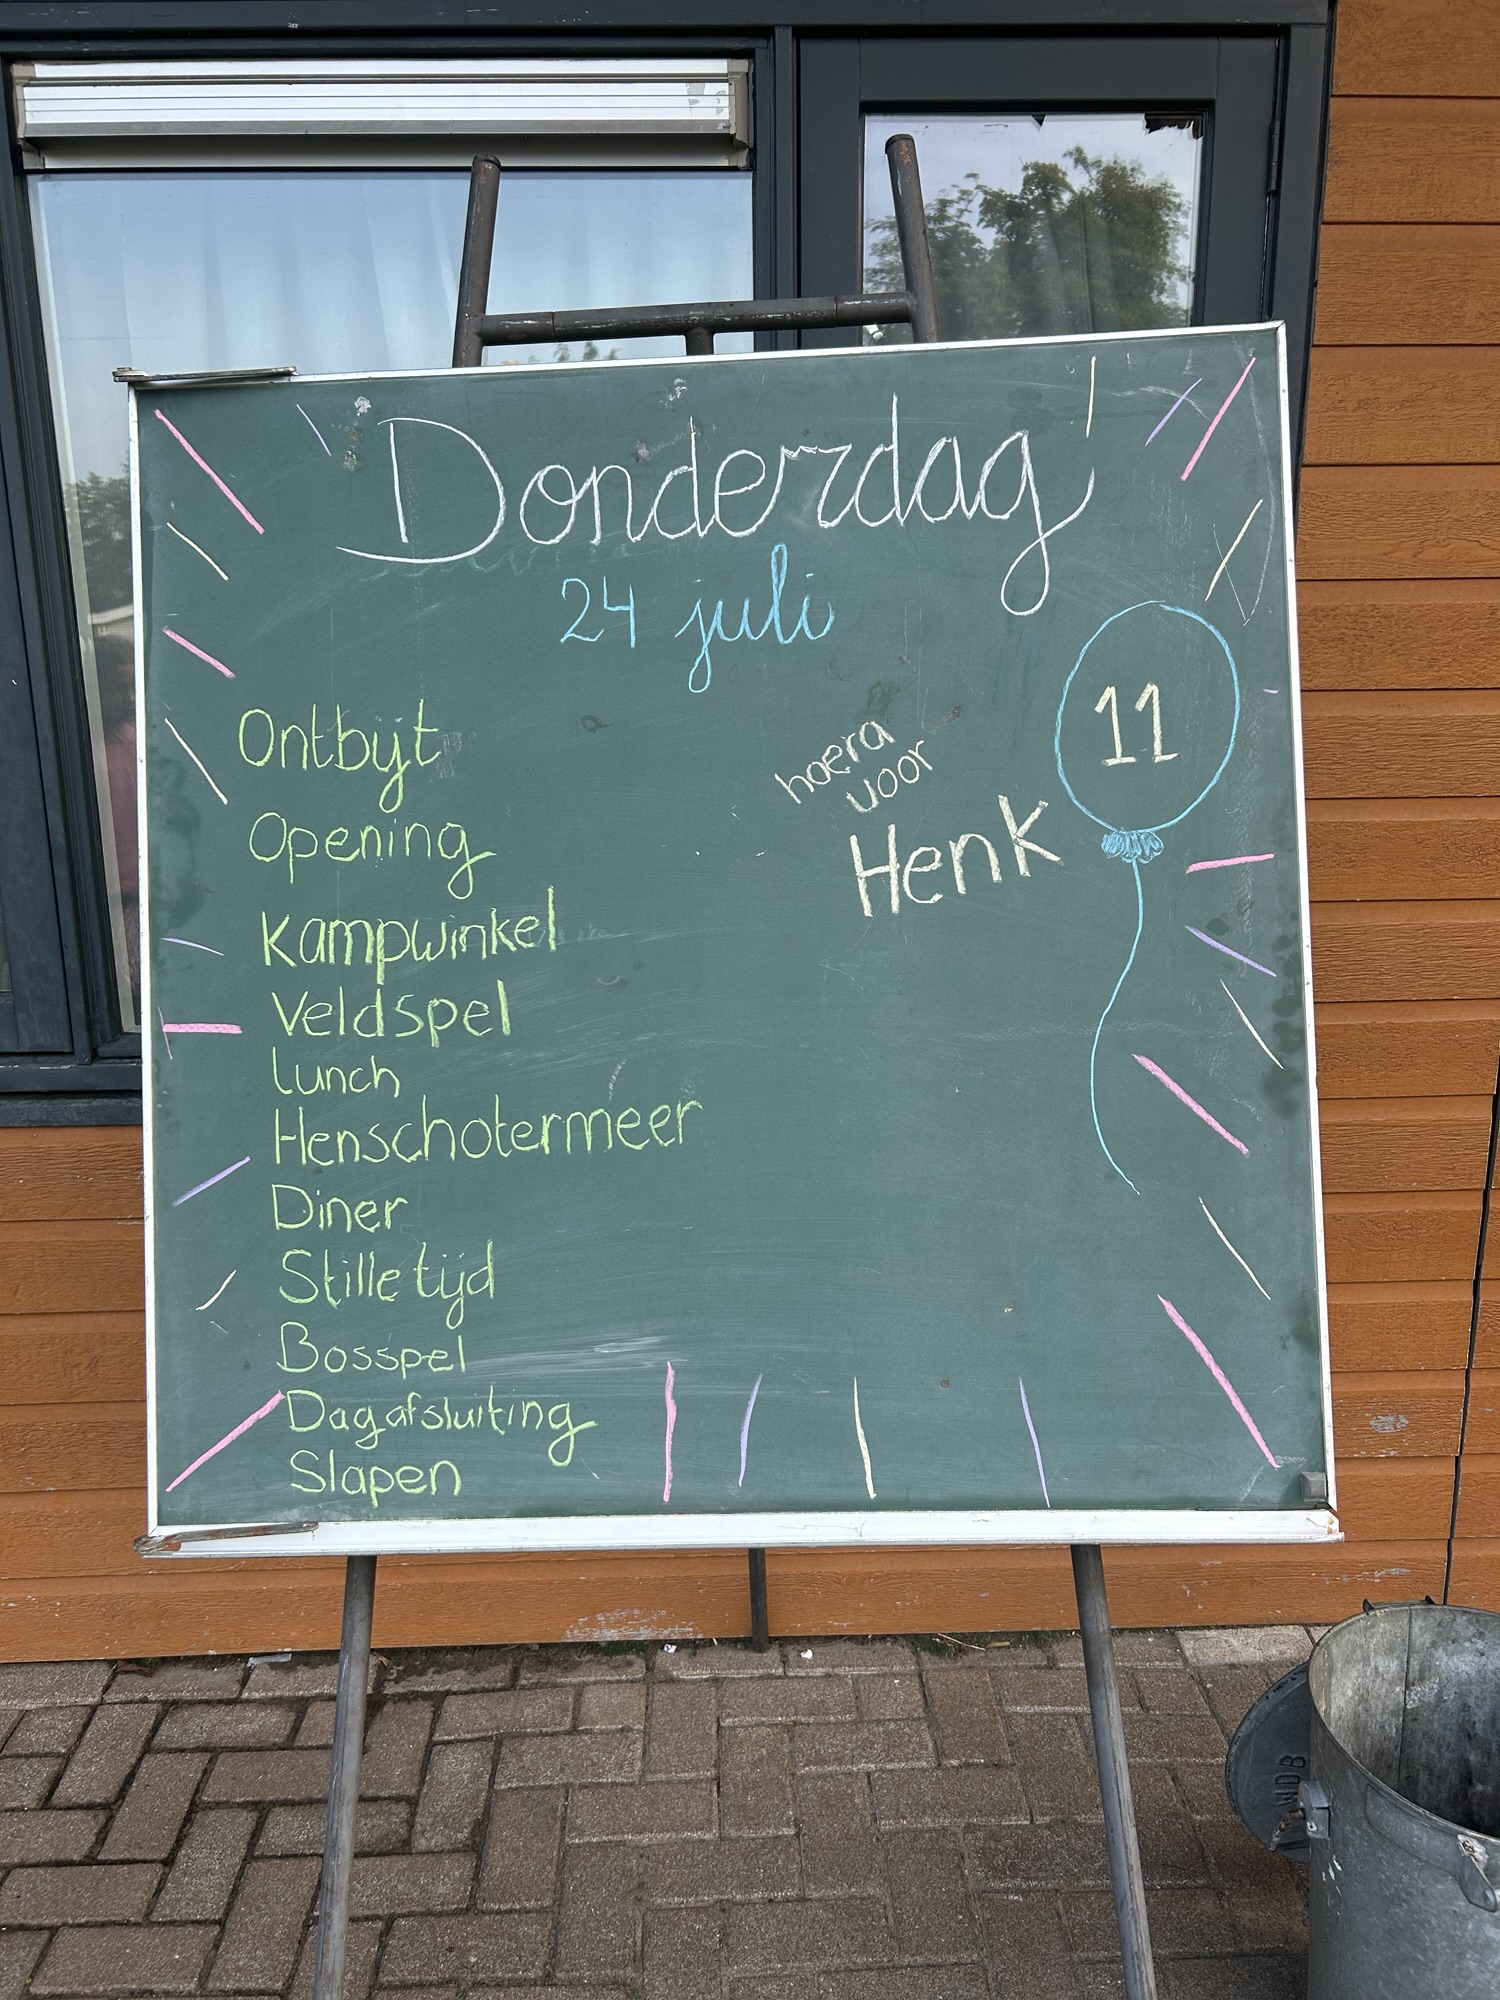 Donderdag
24 juli
Ontbijt
Opening
Kampwinkel
Veldspel
lunch
Henschotermeer
Diner
Stille tijd
Bosspel
Dagafsluiting
Slapen
hoera
voor
Henk
11
MDB